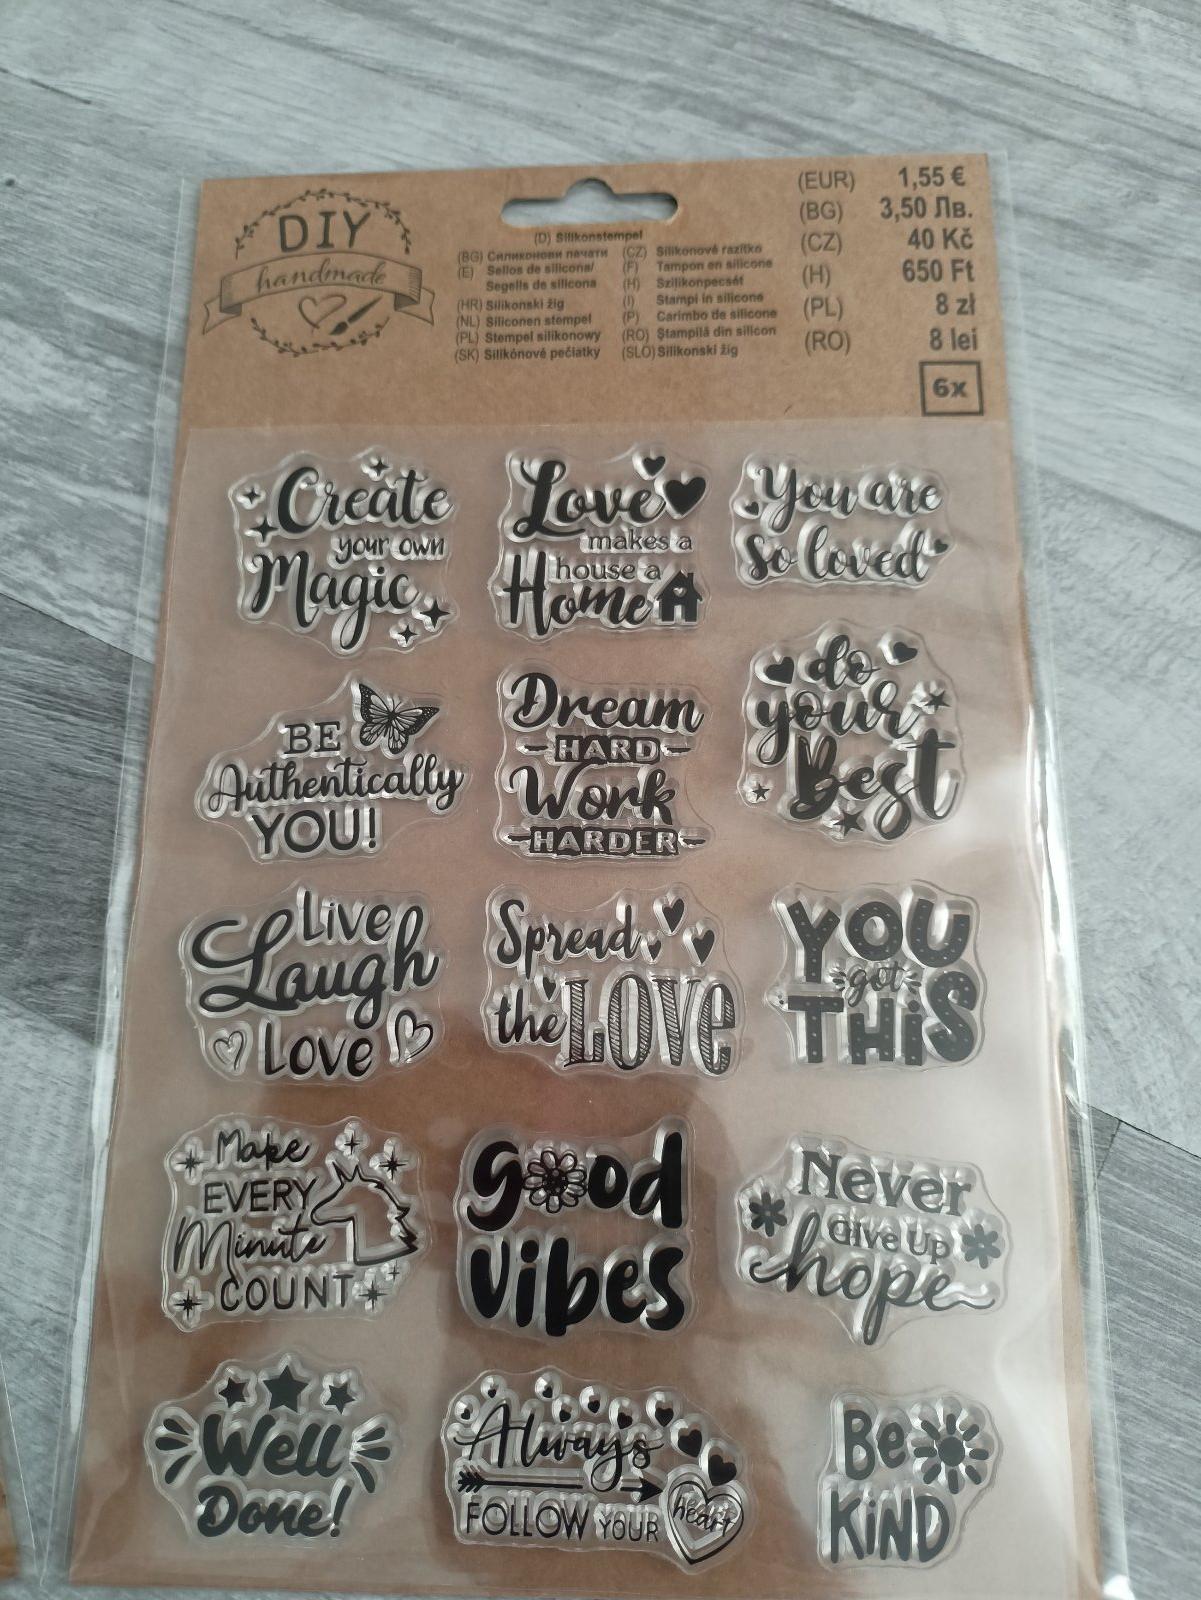 DIY
handmade
(D) Silikonstempel
(BG) Силиконови печати
(E) Sellos de silicona/
Segells de silicona
(HR) Silikonski žig
(NL) Siliconen stempel
(PL) Stempel silikonowy
(SK) Silikónové pečiatky
(CZ) Silikonové razítko
(F) Tampon en silicone
(H) Szilikonpecsét
(I) Stampi in silicone
(P) Carimbo de silicone
(RO) Ștampilă din silicon
(SLO) Silikonski žig
(EUR) 1,55 €
(BG) 3,50 Лв.
(CZ) 40 Kč
(H) 650 Ft
(PL) 8 zł
(RO) 8 lei
6x
Create
your own
Magic
Love
makes a
house a
Home
You are
so loved
BE
Authentically
YOU!
Dream
HARD
Work
HARDER
do
your
Best
Live
Laugh
Love
Spread
the LOVE
YOU
got
THiS
Make
EVERY
Minute
COUNT
good
vibes
Never
Give Up
hope
Well
Done!
Always
FOLLOW YOUR heart
Be
KiND